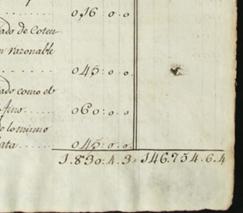 0,16 0.0
ado de Coten
n razonable
..... 0,45: 0.0
ado como el
fino ..... 060: 0.0
de lo mismo
ata ..... 045: 0.0
1.830.4.3 146.754.6.4